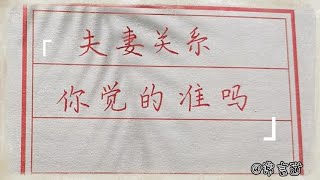 「夫妻关系
你觉的准吗」